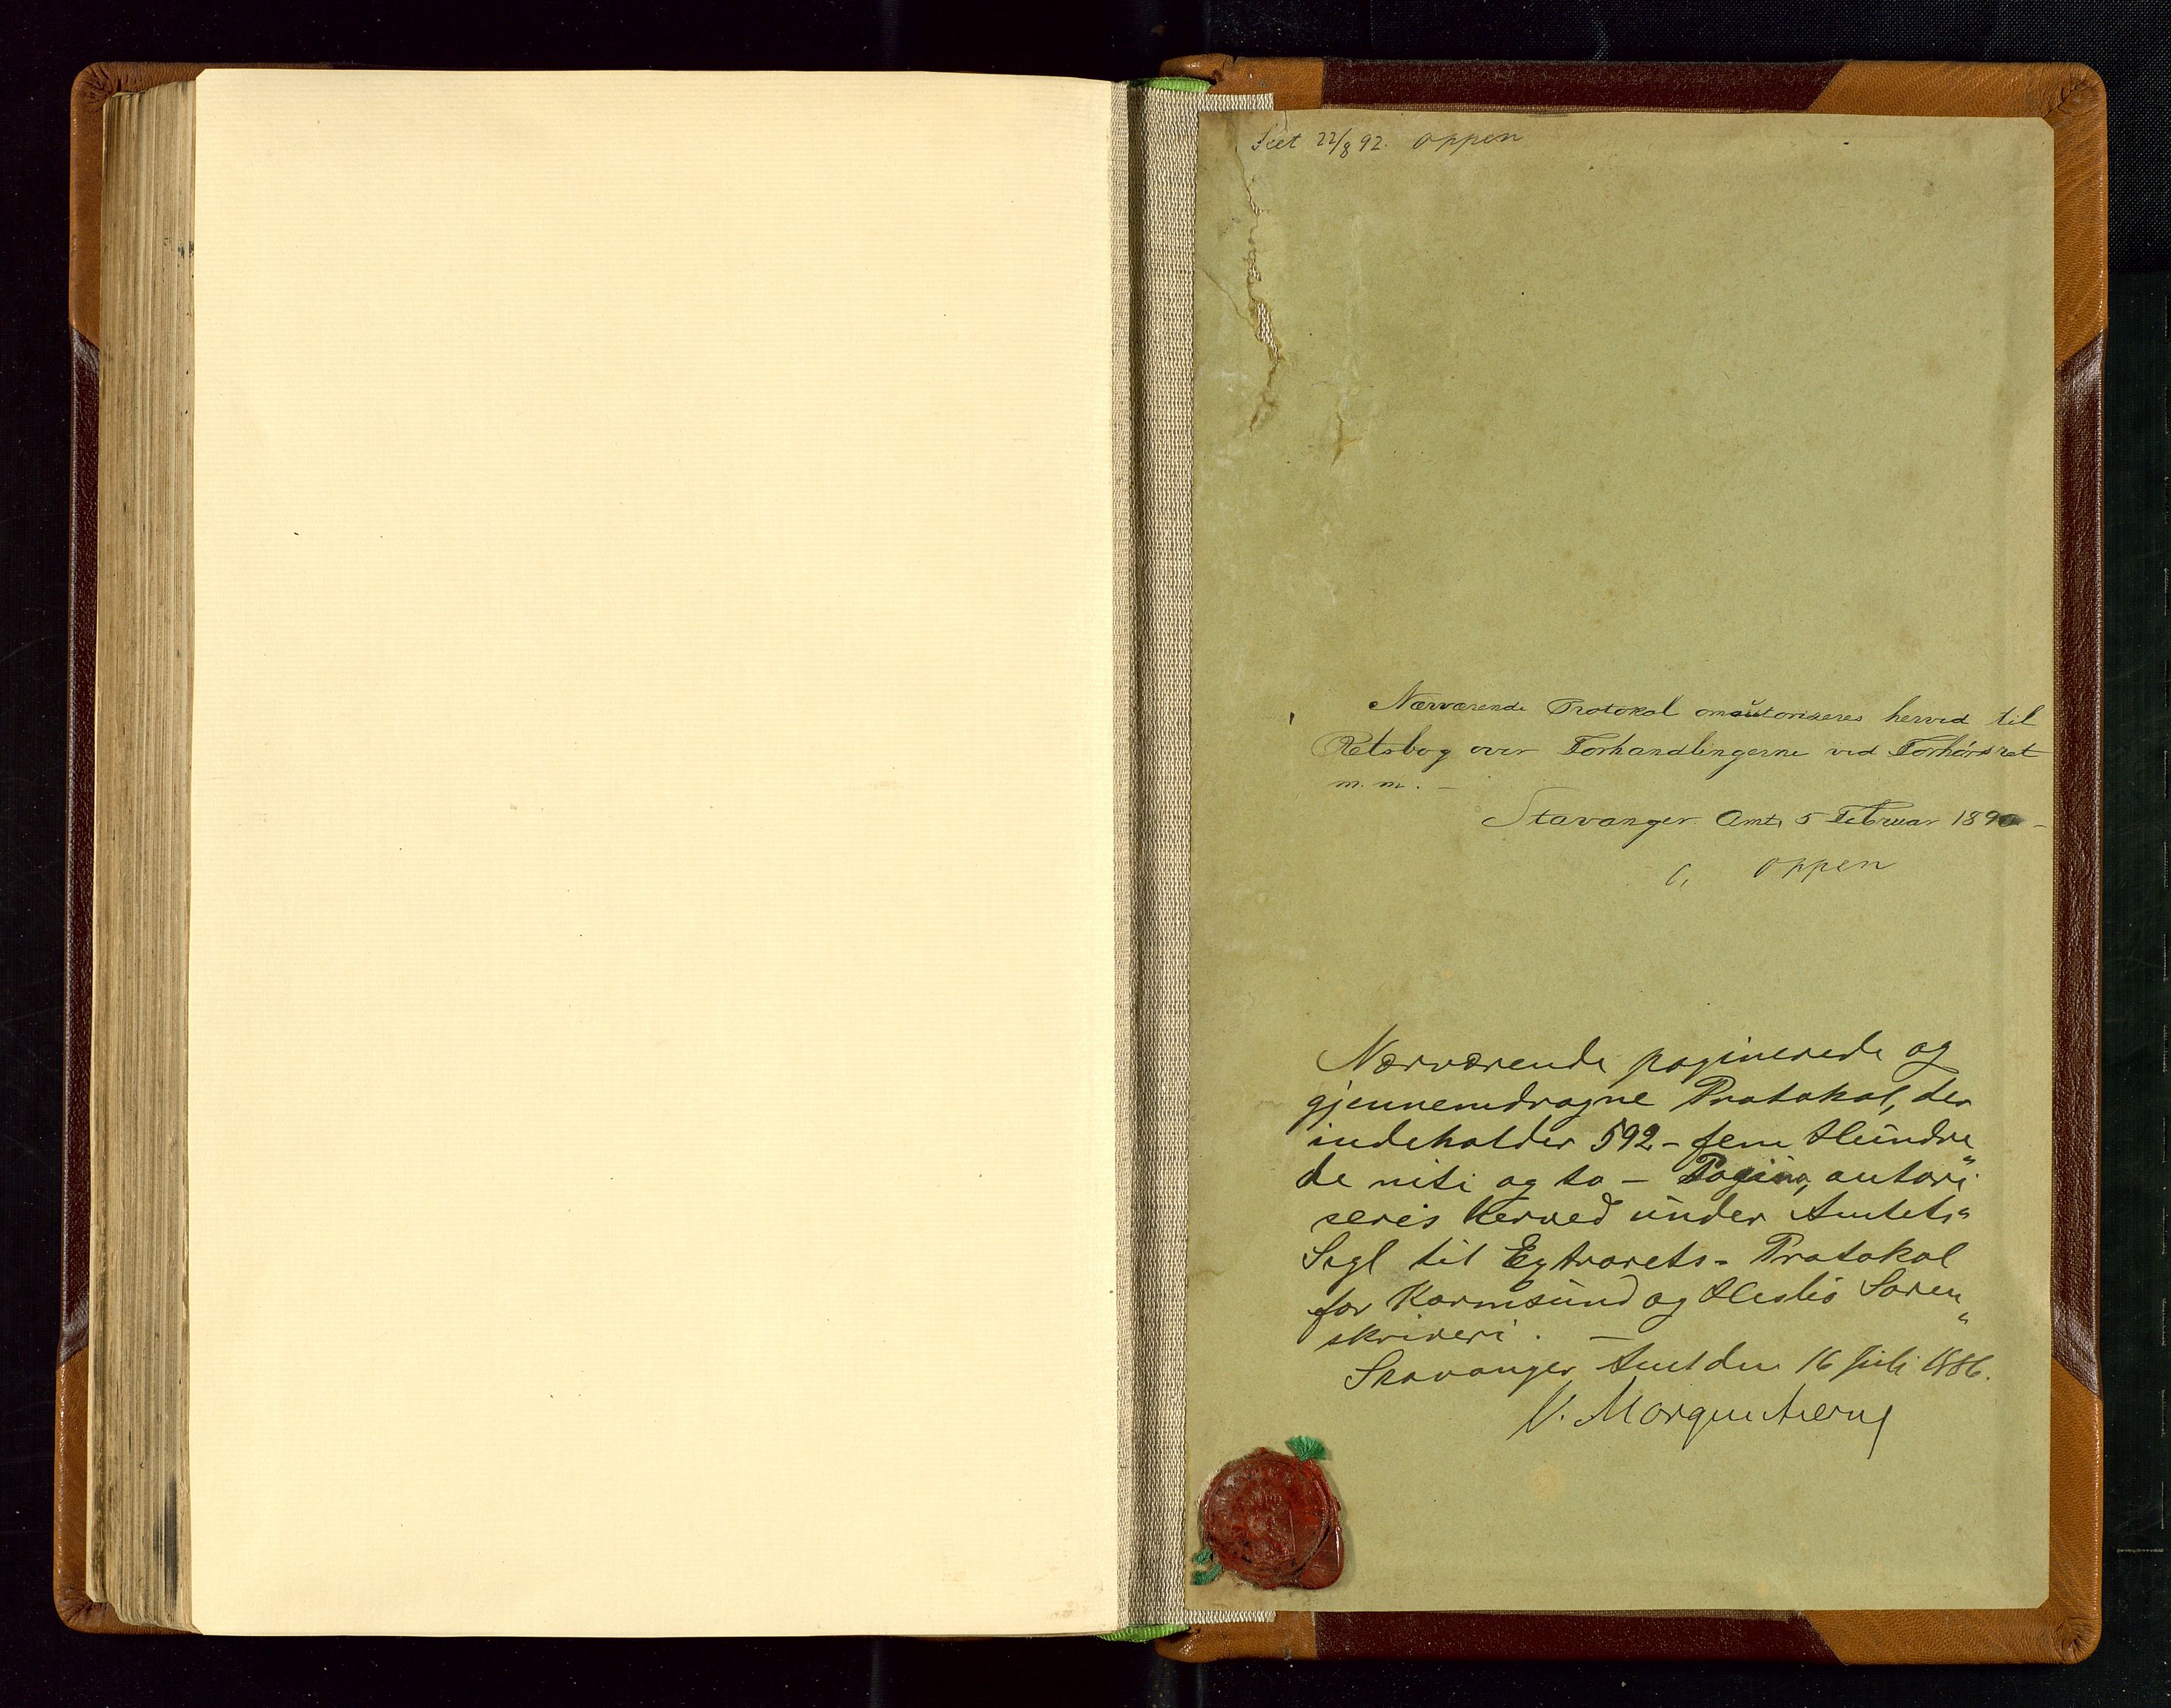 Seet 22/8 92. Oppen
Nærværende Protokol omautoriseres herved til
Retsbog over Forhandlingerne ved Forhørsret
m. m. –
Stavanger Amt, 5 Februar 1890 –
C, Oppen
Nærværende paginerede og
gjennemdragne Protokol, der
indeholder 592 – fem Hundre"
de niti og to – Pagina, autori"
seres herved under Amtets"
Segl til Extrarets- Protokol
for Karmsund og Hesbø Soren"
skriveri. –
Stavanger Amt den 16 Juli 1886.
V. Morgenstierne